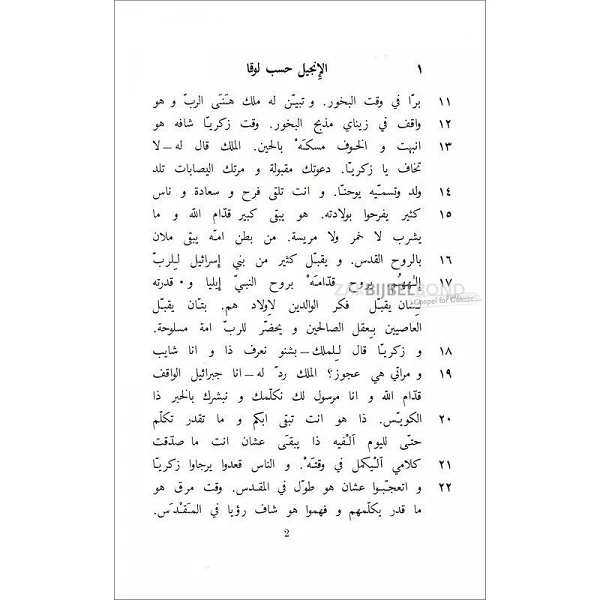 ١ الإنجيل حسب لوقا
١١ برّا في وقت البخور. و تبيّن له ملك هتنَى الربّ و هو
١٢ واقف في زيناي مذبح البخور. وقت زكريّا شافه هو
١٣ انبهت و الخوف مسكتهْ بالحين. الملك قال له — لا
تخاف يا زكريّا. دعوتك مقبولة و مرتك اليصابات تلد
١٤ ولد وتسمّيه يوحنّا. و انت تلتى فرح و سعادة و ناس
١٥ كثير يفرحوا بولادته. هو يبتى كبير قدّام الله و ما
يشرب لا خمر ولا مريسة. من بطن امه يبتى ملان
١٦ بالروح القدس. و يقبّل كثير من بني إسرائيل لِلربّ
١٧ بروح قدّامهْ بروح النبيّ إيليا و قدرته
لِشان يقبّل فكر الوالدين لِاولاد هم. بتّان يقبّل
العاصيين بِعقل الصالحين و يحضّر للربّ امة مسلوحة.
١٨ و زكريّا قال لِلملك — بشنو نعرف ذا و انا شايب
١٩ و مراتي هي عجوز؟ الملك ردّ له — انا جبرائيل الواقف
قدّام الله و انا مرسول لك نكلّمك و نبشرك بالخبر ذا
٢٠ الكويّس. ذا هو انت تبتى ابكم و ما تقدر تكلّم
حتّى لليوم ٱلّفيه ذا يبتَى عشان انت ما صدّقت
٢١ كلامي ٱلّيكمل في وقتهْ. و الناس قعدوا يرجاوا زكريّا
٢٢ و اتعجّبوا عشان هو طوّل في المقدس. وقت مرق هو
ما قدر يكلّمهم و فهموا هو شاف رؤيا في المَقْدَس.
2
BIJBEL
Gospel for Guests